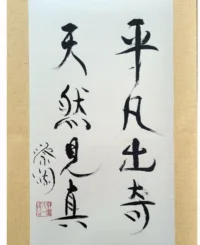 平凡出奇
天然見真